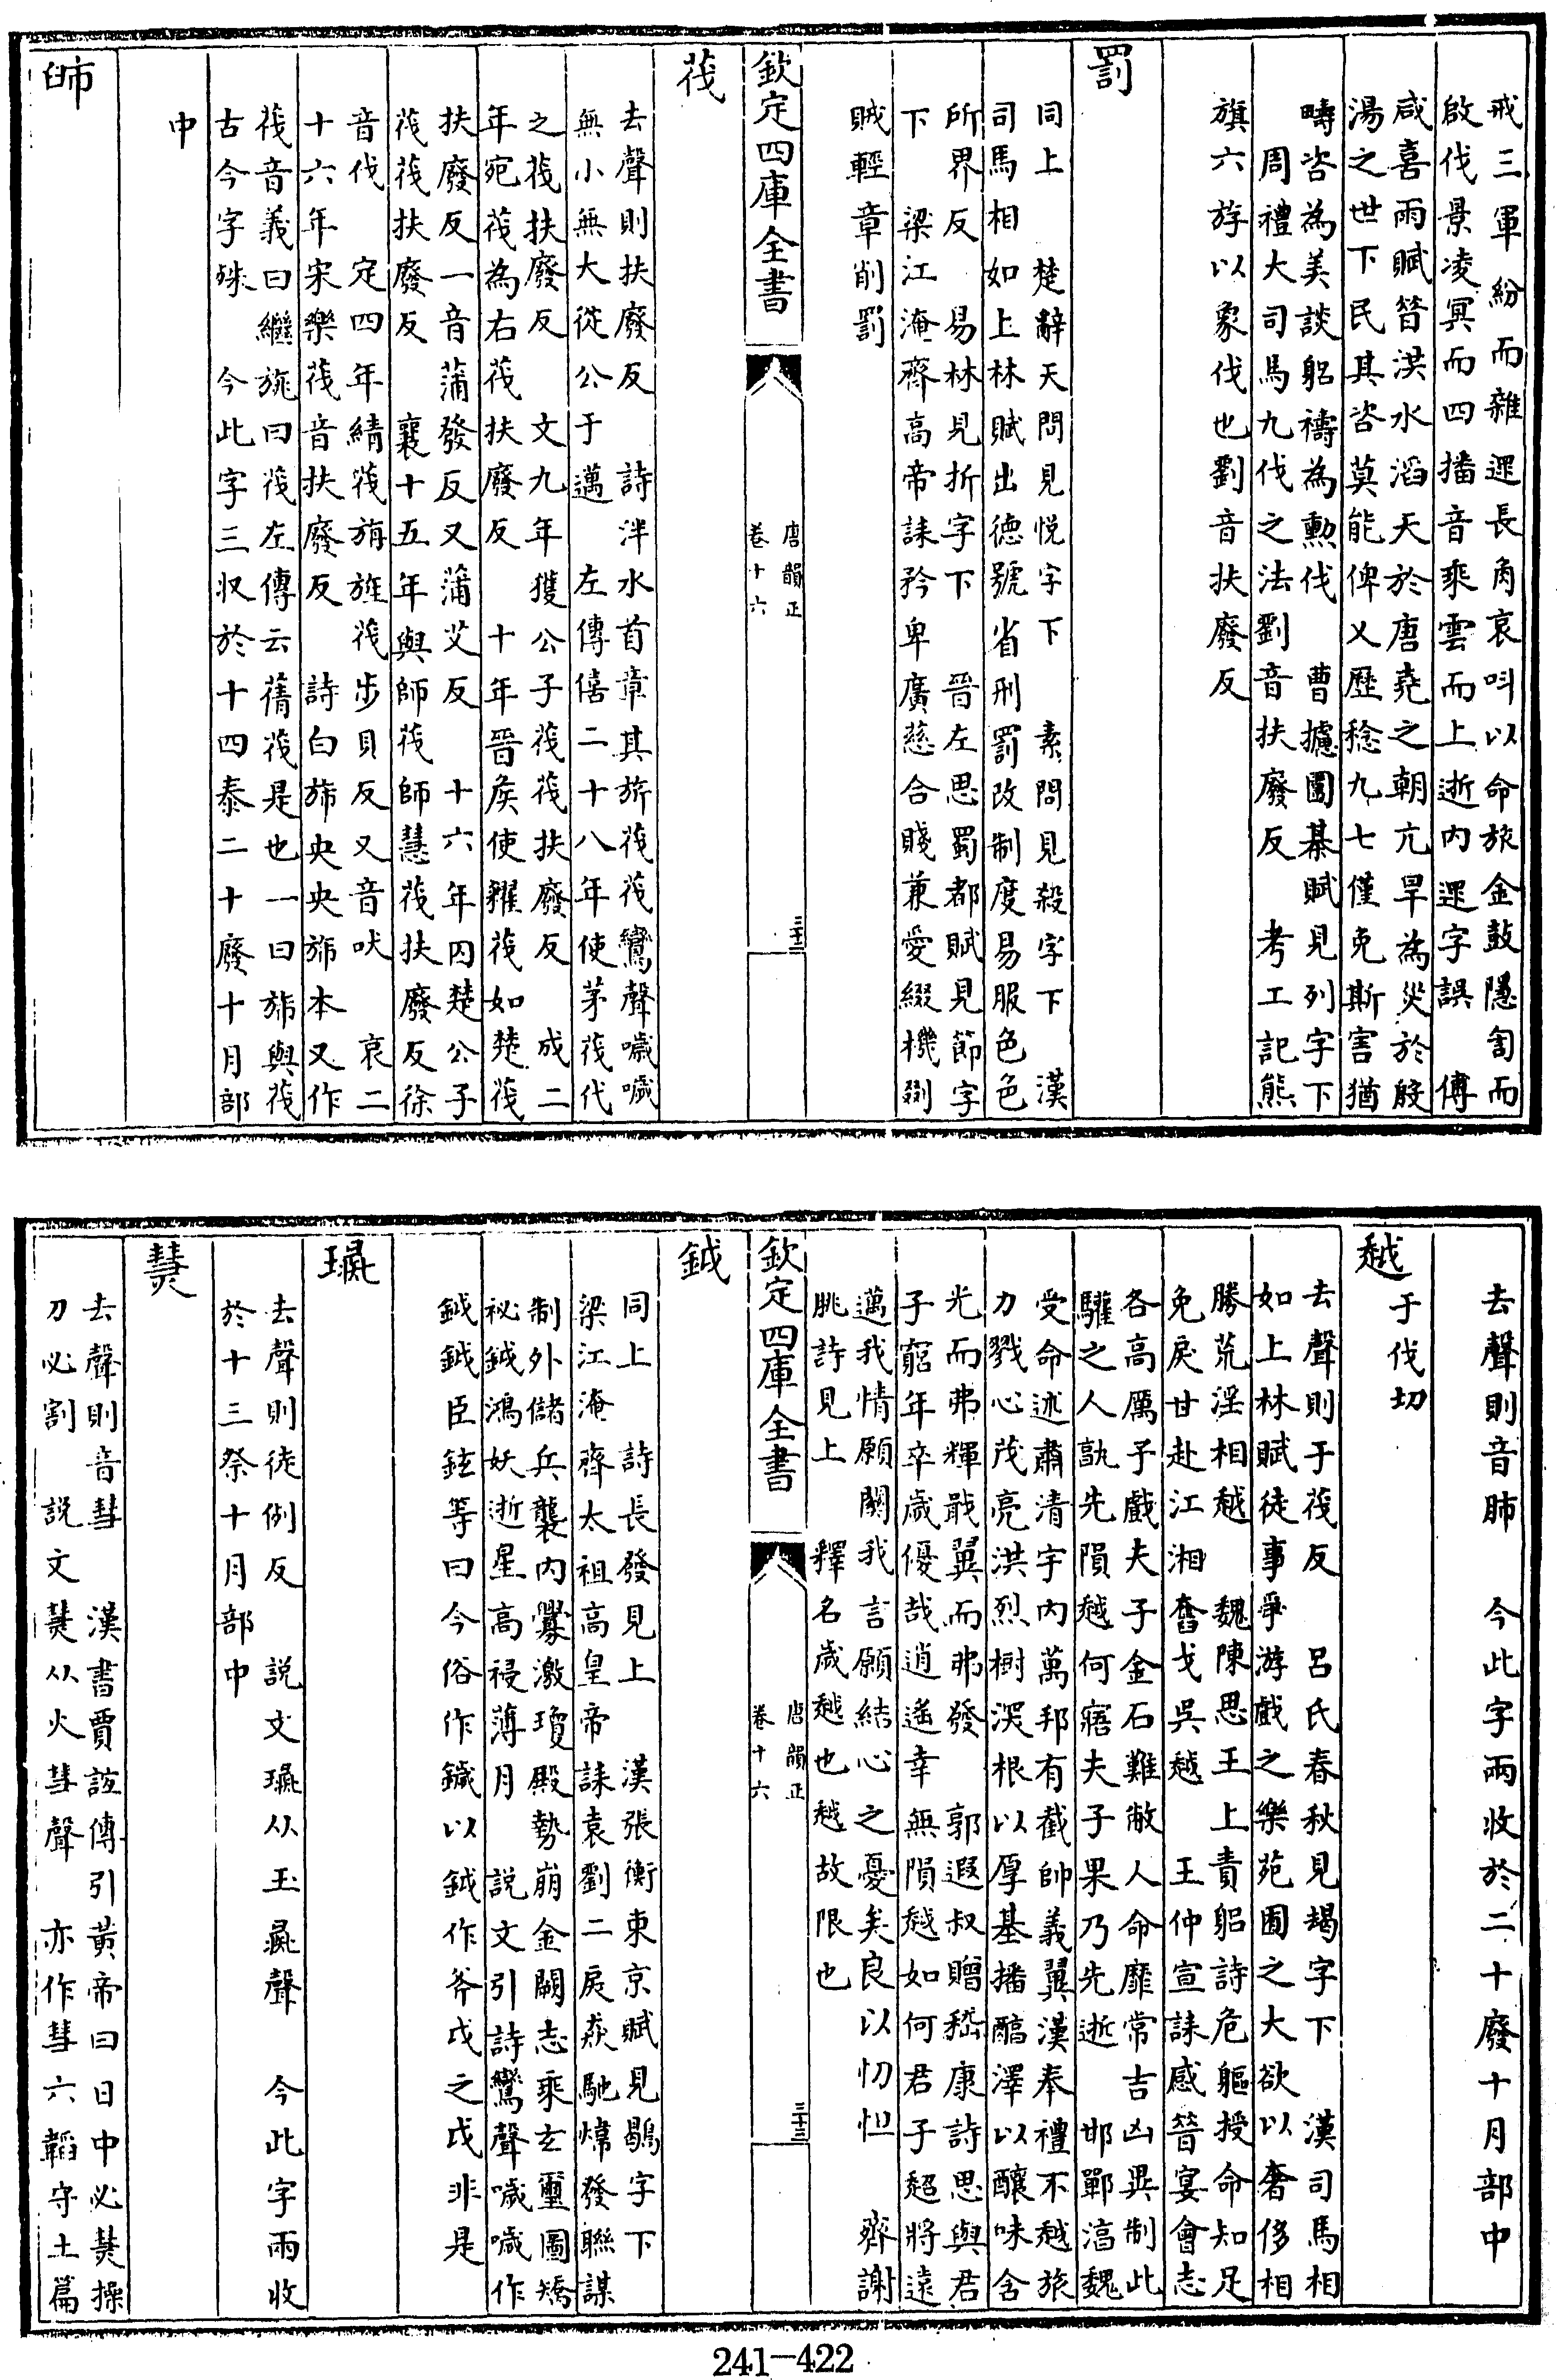 戒三軍紛而雜遝長角哀叫以命旅金鼓隱訇而
啟伐景凌冥而四播音乘雲而上逝内遝字誤　傅
咸喜雨賦昔洪水滔天於唐堯之朝亢旱為災於殷
湯之世下民其咨莫能俾乂歷稔九七僅免斯害猶
疇咨為美談躬禱為勲伐　曹攄圍棊賦見列字下
周禮大司馬九伐之法劉音扶廢反　考工記熊
旗六斿以象伐也劉音扶廢反
罰
同上　楚辭天問見悦字下　素問見殺字下　漢
司馬相如上林賦出德號省刑罰改制度易服色色
所界反　易林見折字下　晉左思蜀都賦見節字
下　梁江淹齊高帝誄矜卑廣慈合賤兼愛綴機捌
賊輕章削罰
欽定四庫全書
唐韻正
卷十六
三十二
茷
去聲則扶廢反　詩泮水首章其旂茷茷鸞聲噦噦
無小無大從公于邁　左傳僖二十八年使茅茷代
之茷扶廢反　文九年獲公子茷茷扶廢反　成二
年宛茷為右茷扶廢反　十年晉侯使糴茷如楚茷
扶廢反一音蒲發反又蒲艾反　十六年囚楚公子
茷茷扶廢反　襄十五年與師茷師慧茷扶廢反徐
音伐　定四年綪茷旃旌茷步貝反又音吠　哀二
十六年宋樂茷音扶廢反　詩白旆央央旆本又作
茷音義曰繼旐曰茷左傳云蒨茷是也一曰旆與茷
古今字殊　今此字三収於十四泰二十廢十月部
中
𠂤巿
去聲則音肺　今此字兩收於二十廢十月部中
越
于伐切
去聲則于茷反　呂氏春秋見朅字下　漢司馬相
如上林賦徒事爭游戲之樂苑囿之大欲以奢侈相
勝荒淫相越　魏陳思王上責躬詩危軀授命知足
免戾甘赴江湘奮戈吳越　王仲宣誄感晉宴會志
各高厲予戲夫子金石難敝人命靡常吉凶異制此
驩之人孰先隕越何寤夫子果乃先逝　邯鄲淳魏
受命述肅清宇内萬邦有截帥義翼漢奉禮不越旅
力戮心茂亮洪烈樹深根以厚基播醇澤以釀味含
光而弗輝戢翼而弗發　郭遐叔贈嵇康詩思與君
子窮年卒歲優哉逍遙幸無隕越如何君子超將遠
邁我情願關我言願結心之憂矣良以忉怛　齊謝
朓詩見上　釋名歲越也越故限也
欽定四庫全書
唐韻正
卷十六
三十三
鉞
同上　詩長發見上　漢張衡東京賦見鶡字下
梁江淹齊太祖高皇帝誄袁劉二戾猋馳煒發聯謀
制外儲兵襲内釁激瓊殿勢崩金闕志乘玄璽圖矯
祕鉞鴻妖逝星高祲薄月　説文引詩鸞聲噦噦作
鉞鉞臣鉉等曰今俗作鐬以鉞作斧戉之戉非是
瓗
去聲則徒例反　説文瓗从玉彘聲　今此字兩收
於十三祭十月部中
熭
去聲則音彗　漢書賈誼傳引黃帝曰日中必熭操
刀必割　説文熭从火彗聲　亦作彗六韜守土篇
241-422